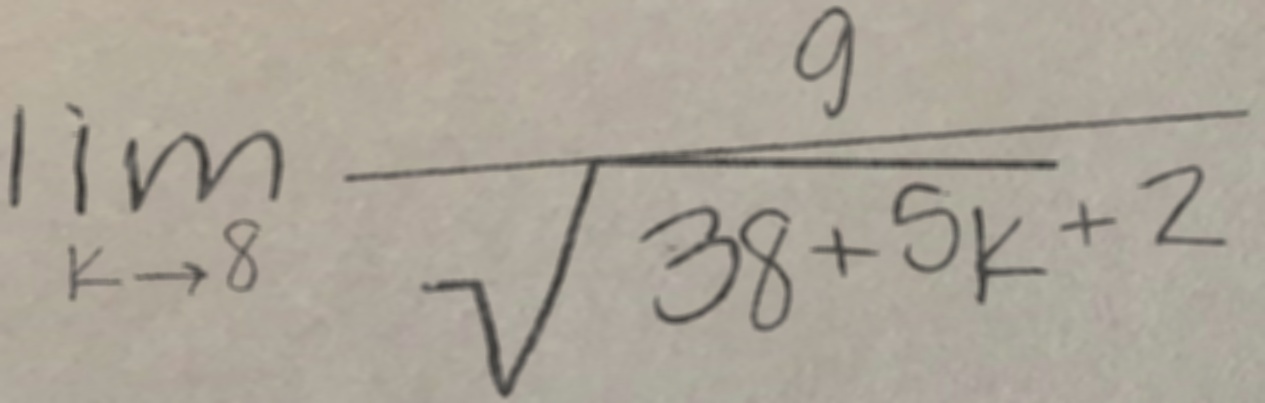 lim_{k→8} \frac{9}{\sqrt{38+5k}+2}